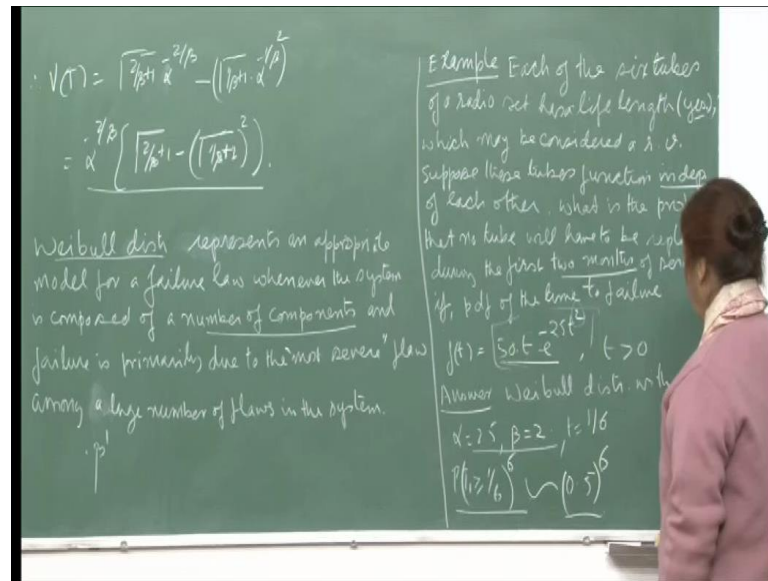 ∴ V(T) = Γ2/β+1 α^-2/β − (Γ1/β+1 · α^-1/β)^2
= α^-2/β {Γ2/β+1 − (Γ1/β+1)^2}.
Weibull dist represents an appropriate
model for a failure law whenever the system
is composed of a number of components and
failure is primarily due to the "most severe" flaw
among a large number of flaws in the system.
Example Each of the six tubes
of a radio set has a life length (years),
which may be considered a r.v.
Suppose these tubes function indep
of each other. what is the
that no tube will have to be
during the first two months of
if, pdf of the time to failure
f(t) = 50.t.e^-25t^2, t > 0
Answer Weibull distr. with
α=25, β=2, t=1/6
P(T≥1/6)^6 ∼ (0.5)^6